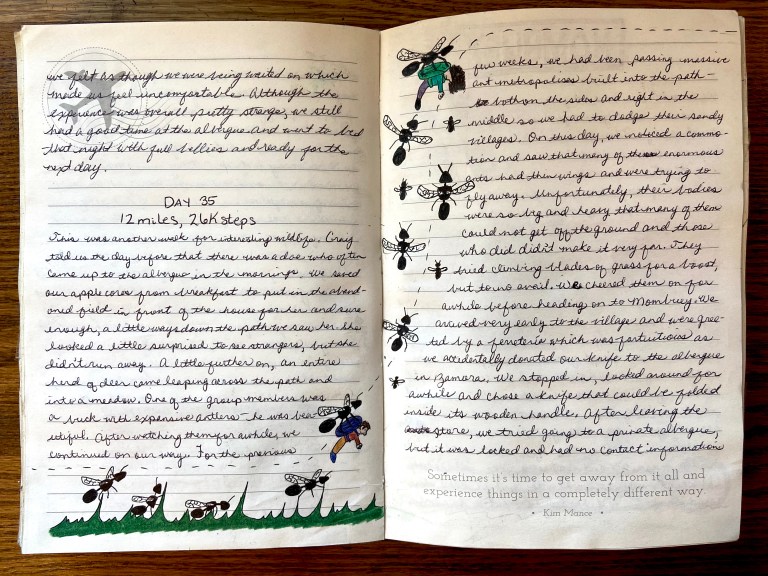 we felt as though we were being waited on which
made us feel uncomfortable. Although the
experience was overall pretty strange, we still
had a good time at the albergue and went to bed
that night with full bellies and ready for the
next day.
DAY 35
12 miles, 26K steps
This was another week for interesting wildlife. Craig
told us the day before that there was a doe who often
came up to the albergue in the mornings. We saved
our apple cores from breakfast to put in the aband-
oned field in front of the house for her and sure
enough, a little ways down the path we saw her. She
looked a little surprised to see strangers, but she
didn't run away. A little further on, an entire
herd of deer came leaping across the path and
into a meadow. One of the group members was
a buck with expansive antlers - he was bea-
utiful. After watching them for awhile, we
continued on our way. For the previous
few weeks, we had been passing massive
ant metropolises built into the path -
both on the sides and right in the
middle so we had to dodge their sandy
villages. On this day, we noticed a commo-
tion and saw that many of these enormous
ants had their wings and were trying to
fly away. Unfortunately, their bodies
were so big and heavy that many of them
could not get off the ground and those
who did didn't make it very far. They
tried climbing blades of grass for a boost,
but to no avail. We cheered them on for
awhile before heading on to Mombuey. We
arrived very early to the village and were gree-
ted by a ferretería which was fortuitious as
we accidentally donated our knife to the albergue
in Zamora. We stopped in, looked around for
awhile and chose a knife that could be folded
inside its wooden handle. After leaving the
store, we tried going to a private albergue,
but it was locked and had no contact information
Sometimes it's time to get away from it all and
experience things in a completely different way.
• Kim Mance •